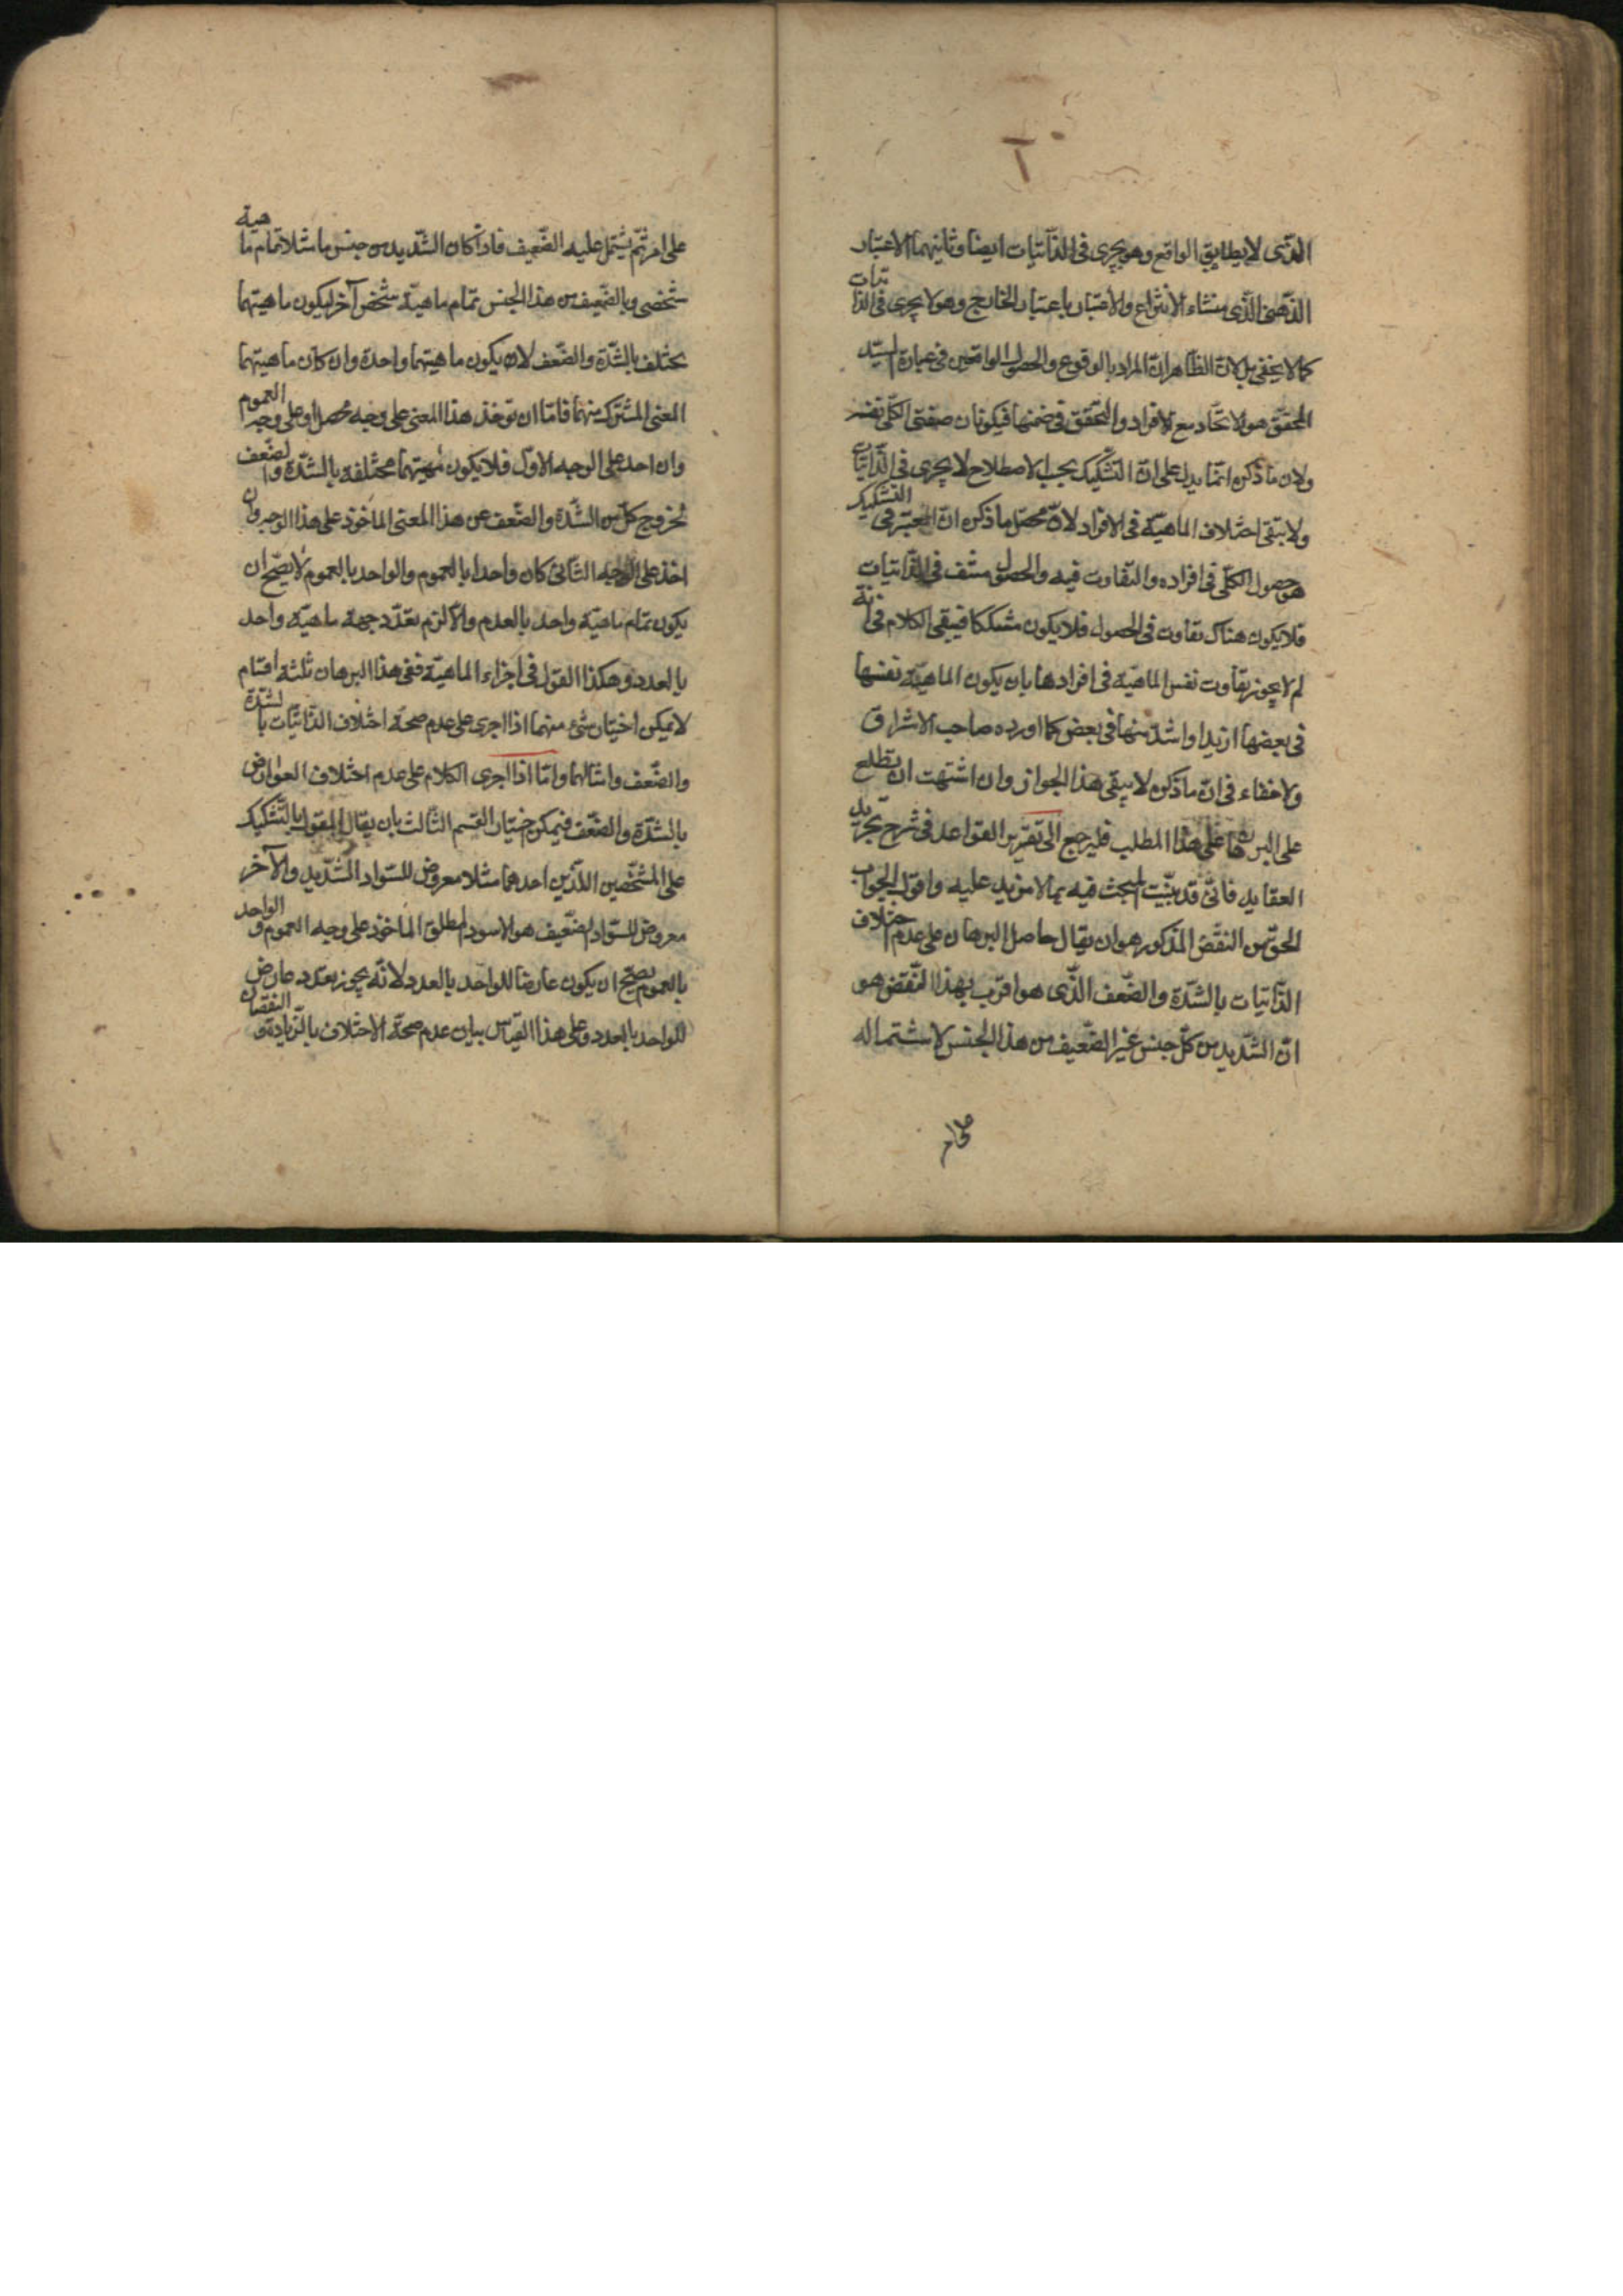 الذى لا يطابق الواقع وهو يجرى فى الذاتيات ايضا وثانيهما الاعتبار
الذهنى الذى منشاء الانتزاع والاعتبار باعتبار الخارج وهو لا يجرى فى الذاتيات
كما لا يخفى بل لان الظاهر ان المراد بالوقوع والحصول الواقعين فى عبارة السيد
المحقق هو الاتحاد مع الافراد والتحقق فى ضمنها فيكونان صفتى الكلى نفسه
ولان ما ذكره انما يدل على ان التشكيك بحسب الاصطلاح لا يجرى فى الذاتيات
ولا ينفى اختلاف الماهية فى الافراد لان محصل ما ذكره ان المعتبر فى التشكيك
هو حصول الكلى فى افراده والتفاوت فيه والحصول منتف فى الذاتيات
فلا يكون هناك تفاوت فى الحصول فلا يكون مشككا فيبقى الكلام فى انه
لم لا يجوز تفاوت نفس الماهية فى افرادها بان يكون الماهية نفسها
فى بعضها ازيد او اشد منها فى بعض كما اورده صاحب الاشراق
ولا خفاء فى ان ما ذكره لا ينفى هذا الجواز وان اشتهت ان تطلع
على البرهان على هذا المطلب فليرجع الى تقرير القواعد فى شرح تجريد
العقايد فانى قد بينت المبحث فيه بما لا مزيد عليه واقول الجواب
الحق من النقض المذكور هو ان يقال حاصل البرهان على عدم اختلاف
الذاتيات بالشدة والضعف الذى هو اقرب بهذا النقض هو
ان الشديد من كل جنس غير الضعيف من هذا الجنس لاشتماله
على امر
على امر لم يشتمل عليه الضعيف فاذا كان الشديد من جنس ما مثلا تمام ماهية
شخص وبالضعيف من هذا الجنس تمام ماهية شخص آخر ليكون ماهيتهما
يختلف بالشدة والضعف لان يكون ماهيتهما واحدة وان كان ماهيتهما
المعنى المشترك منهما فاما ان توخذ هذا المعنى على وجه محصل او على وجه العموم
وان اخذ على الوجه الاول فلا يكون مهيتهما مختلفة بالشدة والضعف
لخروج كل من الشدة والضعف عن هذا المعنى الماخوذ على هذا الوجه وان
اخذ على الوجه الثانى كان واحدا بالعموم والواحد بالعموم لا يصح ان
يكون تمام ماهية واحد بالعدد والا لزم تعدد جهة ماهية واحد
بالعدد وهكذا القول فى اجزاء الماهية ففى هذا البرهان ثلثة اقسام
لا يمكن اختيار شئ منهما اذا اجرى على عدم صحة اختلاف الذاتيات بالشدة
والضعف وامثالهما واما اذا اجرى الكلام على عدم اختلاف العوارض
بالشدة والضعف فيمكن اختيار القسم الثالث بان يقال المقول بالتشكيك
على المشخصين اللذين احدهما مثلا معروض للسواد الشديد والآخر
معروض للسواد الضعيف هو الاسود المطلق الماخوذ على وجه العموم والواحد
بالعموم يصح ان يكون عارضا للواحد بالعدد لانه يجوز تعدد عارض
للواحد بالعدد وعلى هذا القياس بيان عدم صحة الاختلاف بالزيادة والنقصان